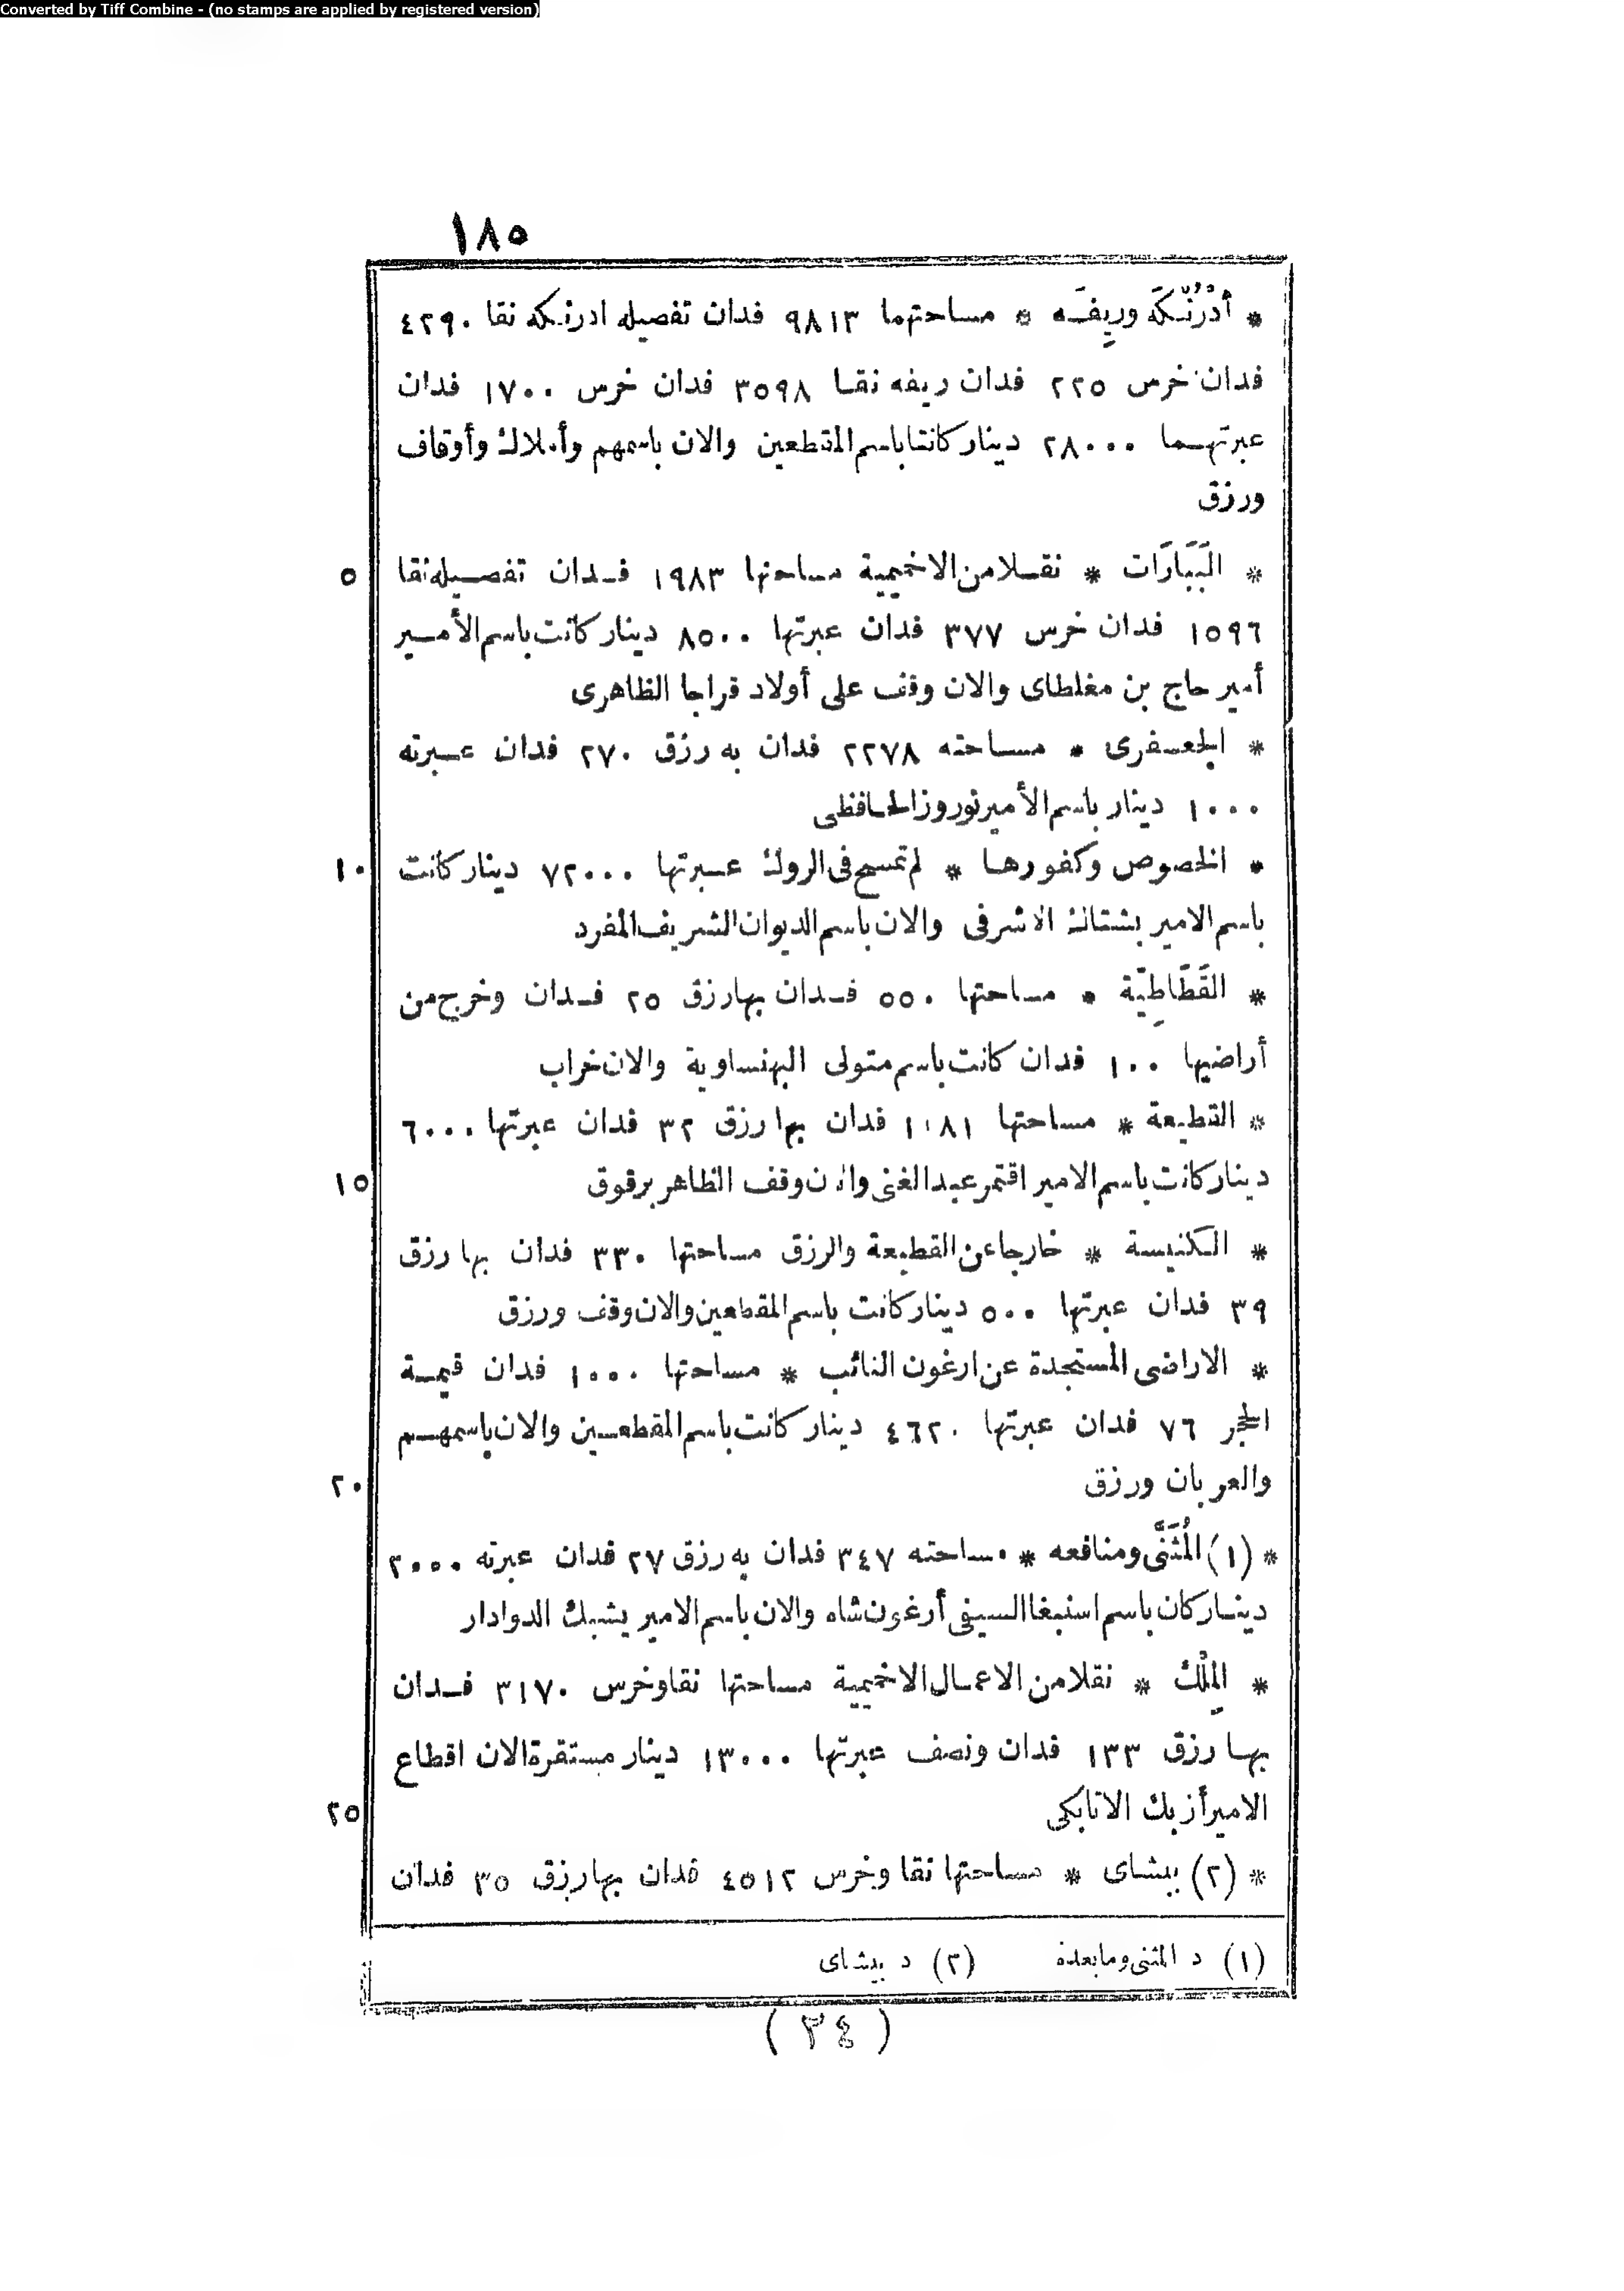 Converted by Tiff Combine - (no stamps are applied by registered version)
١٨٥
* أُدْرُنْكَه ورِيفَه * مساحتهما ٩٨١٣ فدان تفصيله ادرنكه نقا ٤٢٩٠
فدان خرس ٢٢٥ فدان ريفه نقا ٣٥٩٨ فدان خرس ١٧٠٠ فدان
عبرتهما ٢٨٠٠٠ دينار كانتا باسم المقطعين والان باسمهم وأملاك وأوقاف
ورزق
* البَبَارَات * نقلا من الاخميمية مساحتها ١٩٨٣ فدان تفصيله نقا ٥
١٥٩٦ فدان خرس ٣٧٧ فدان عبرتها ٨٥٠٠ دينار كانت باسم الأمير
أمير حاج بن مغلطاى والان وقف على أولاد قراجا الظاهرى
* الجعفرى * مساحته ٢٢٧٨ فدان به رزق ٢٧٠ فدان عبرته
١٠٠٠ دينار باسم الأمير نوروز الحافظى
* الخصوص وكفورها * لم تمسح فى الروك عبرتها ٧٢٠٠٠ دينار كانت ١٠
باسم الامير بشتاك الاشرفى والان باسم الديوان الشريف المفرد
* القَطَّاطِيَّة * مساحتها ٥٥٠ فدان بها رزق ٢٥ فدان وخرج من
أراضيها ١٠٠ فدان كانت باسم متولى البهنساوية والان خراب
* القطيعة * مساحتها ١٠٨١ فدان بها رزق ٣٢ فدان عبرتها ٦٠٠٠
دينار كانت باسم الامير اقتمر عبد الغنى والان وقف الظاهر برقوق ١٥
* الكنيسة * خارجا عن القطيعة والرزق مساحتها ٣٣٠ فدان بها رزق
٣٩ فدان عبرتها ٥٠٠ دينار كانت باسم المقطعين والان وقف ورزق
* الاراضى المستجدة عن ارغون النائب * مساحتها ١٠٠٠ فدان قيمة
الحجر ٧٦ فدان عبرتها ٤٦٢٠ دينار كانت باسم المقطعين والان باسمهم
والعربان ورزق ٢٠
* (١) المُثَنَّى ومنافعه * مساحته ٣٤٧ فدان به رزق ٢٧ فدان عبرته ٢٠٠٠
دينار كان باسم اسنبغا السيفى أرغون شاه والان باسم الامير يشبك الدوادار
* المِلْك * نقلا من الاعمال الاخميمية مساحتها نقا وخرس ٣١٧٠ فدان
بها رزق ١٣٣ فدان ونصف عبرتها ١٣٠٠٠ دينار مستقرة الان اقطاع
الامير أزبك الاتابكى ٢٥
* (٢) بيشاى * مساحتها نقا وخرس ٤٥١٢ فدان بها رزق ٣٥ فدان
(١) د المثنى وما بعده (٢) د بيشاى
(٣٤)